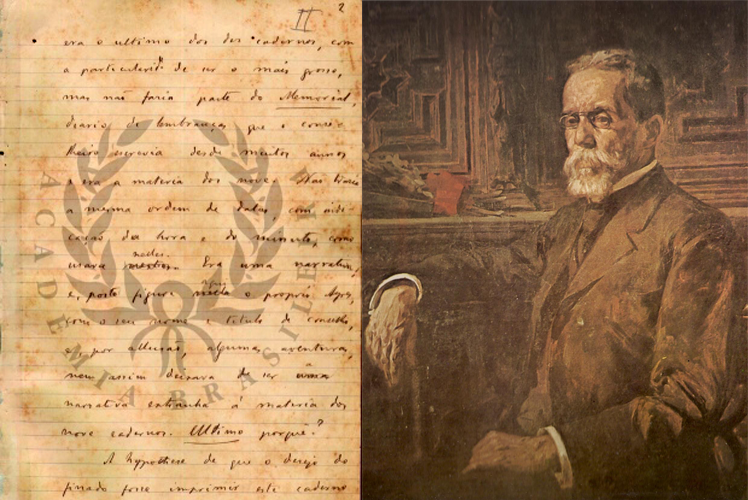 II 2
era o ultimo dos dez cadernos, com
a particularide de ser o mais grosso,
mas não fazia parte do Memorial,
diario de lembranças que o conse-
lheiro escrevia desde muitos annos
e era a materia dos nove. Não trazia
a mesma ordem de datas, com indi-
cação da hora e do minuto, como
usava nelles. Era uma narrativa;
e, posto figure aqui o proprio Ayres,
com o seu nome e titulo de conselho,
e, por allusão, algumas aventuras,
nem assim deixava de ser uma
narrativa extranha á materia dos
nove cadernos. Ultimo porquê?
A hypothese de que o desejo do
finado fosse imprimir este caderno
ACADEMIA BRASILEIRA